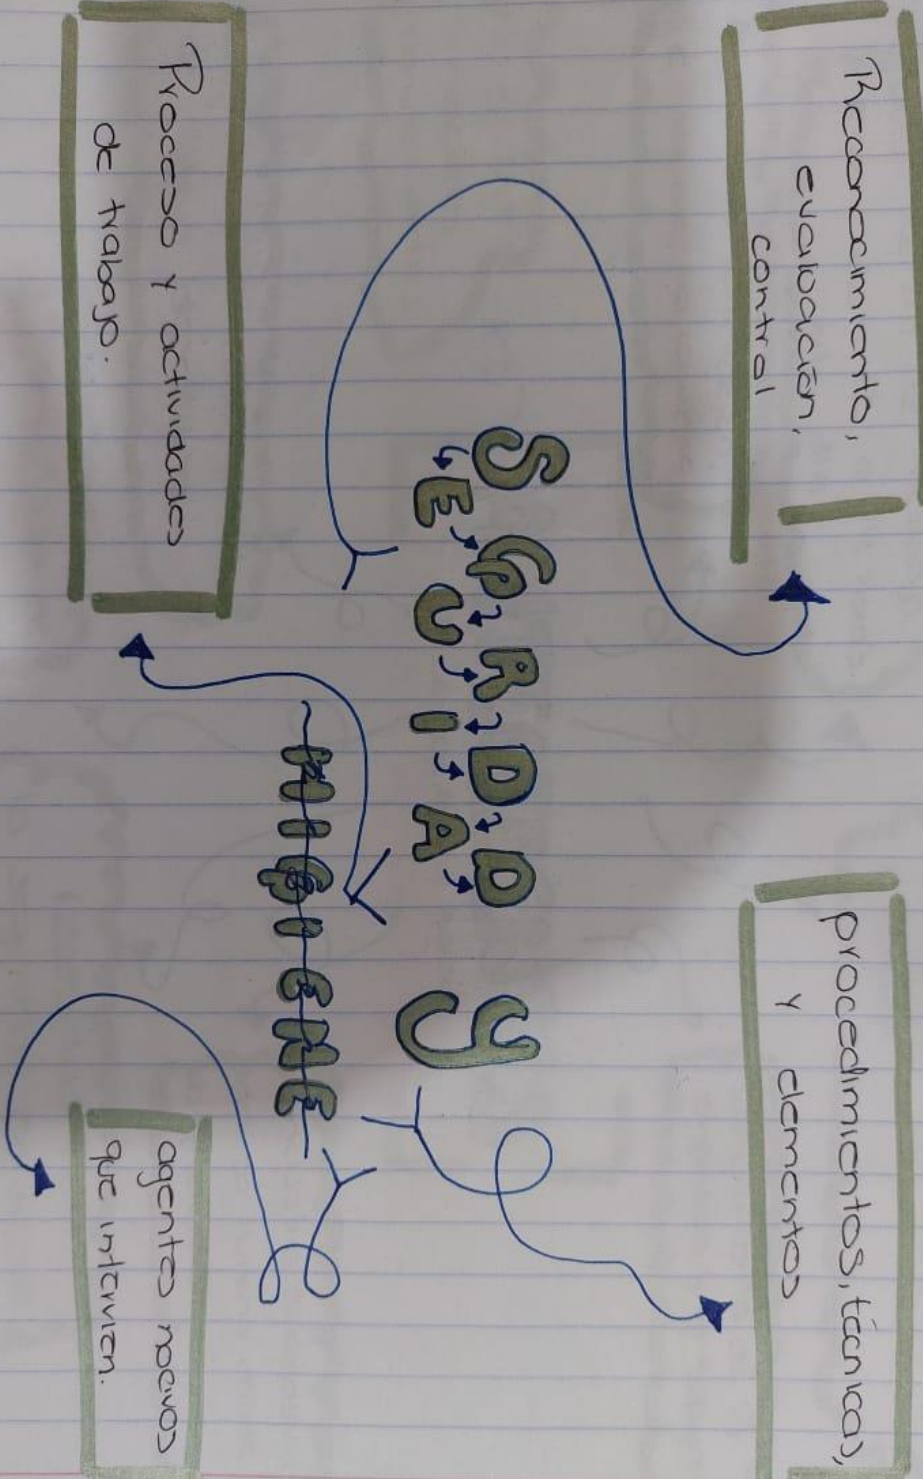 Reconocimiento,
evaluación,
control
procedimientos, técnicas,
y elementos
SEGURIDAD y
HIGIENE
Proceso y actividades
de trabajo.
agentes nocivos
que intervien.